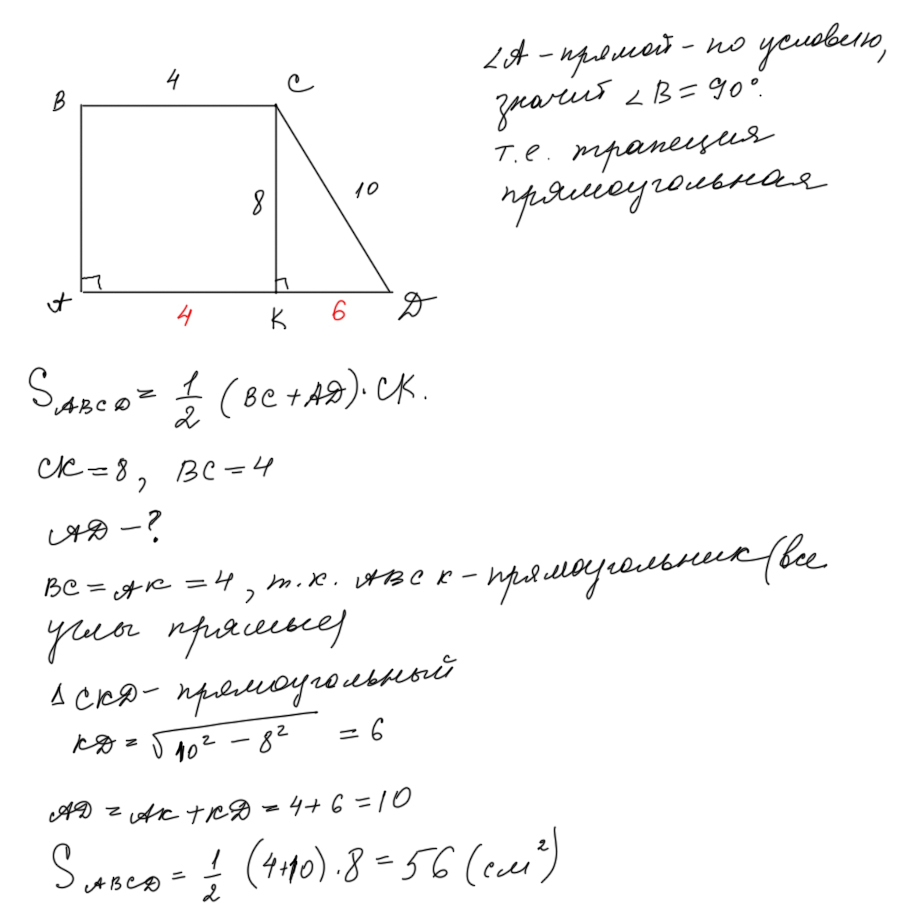 ∠A - прямой - по условию,
значит ∠B = 90°.
т.е. трапеция
прямоугольная
B 4 C
8 10
A 4 K 6 D
S ABCD = 1/2 (BC + AD) · CK.
CK = 8, BC = 4
AD - ?
BC = AK = 4, т.к. ABCK - прямоугольник (все
углы прямые)
Δ CKD - прямоугольный
KD = √(10² - 8²) = 6
AD = AK + KD = 4 + 6 = 10
S ABCD = 1/2 (4+10) · 8 = 56 (см²)